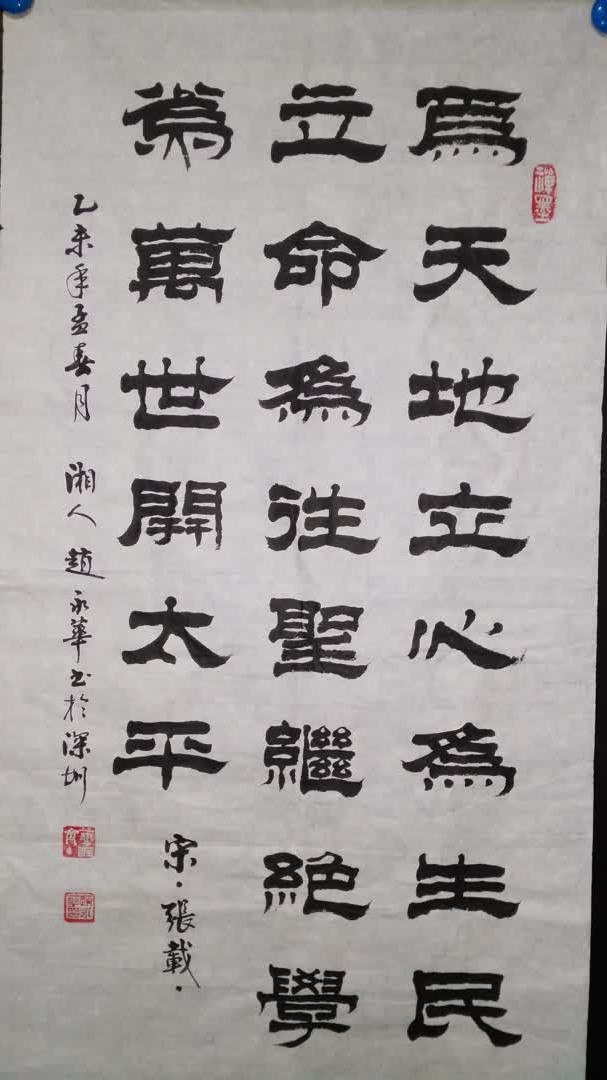 為天地立心為生民
立命為往聖繼絕學
為萬世開太平
宋·張載·
乙未年孟春月 湘人 趙永華书於深圳
禪墨